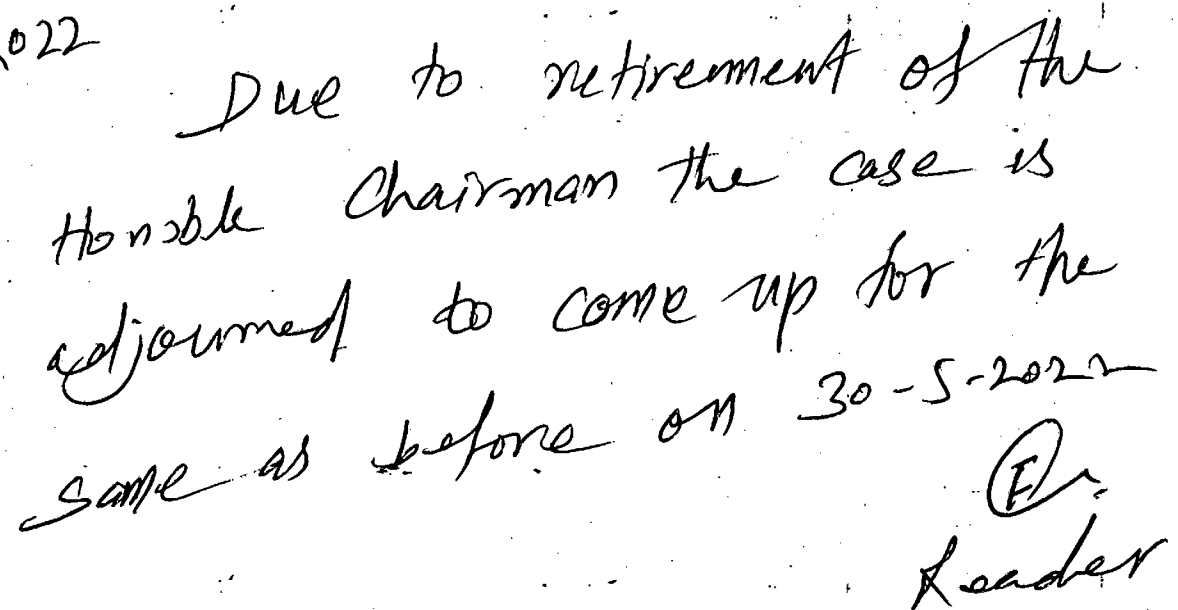 022
Due to retirement of the
Honable Chairman the case is
adjourned to come up for the
same as before on 30-5-2022
Reader